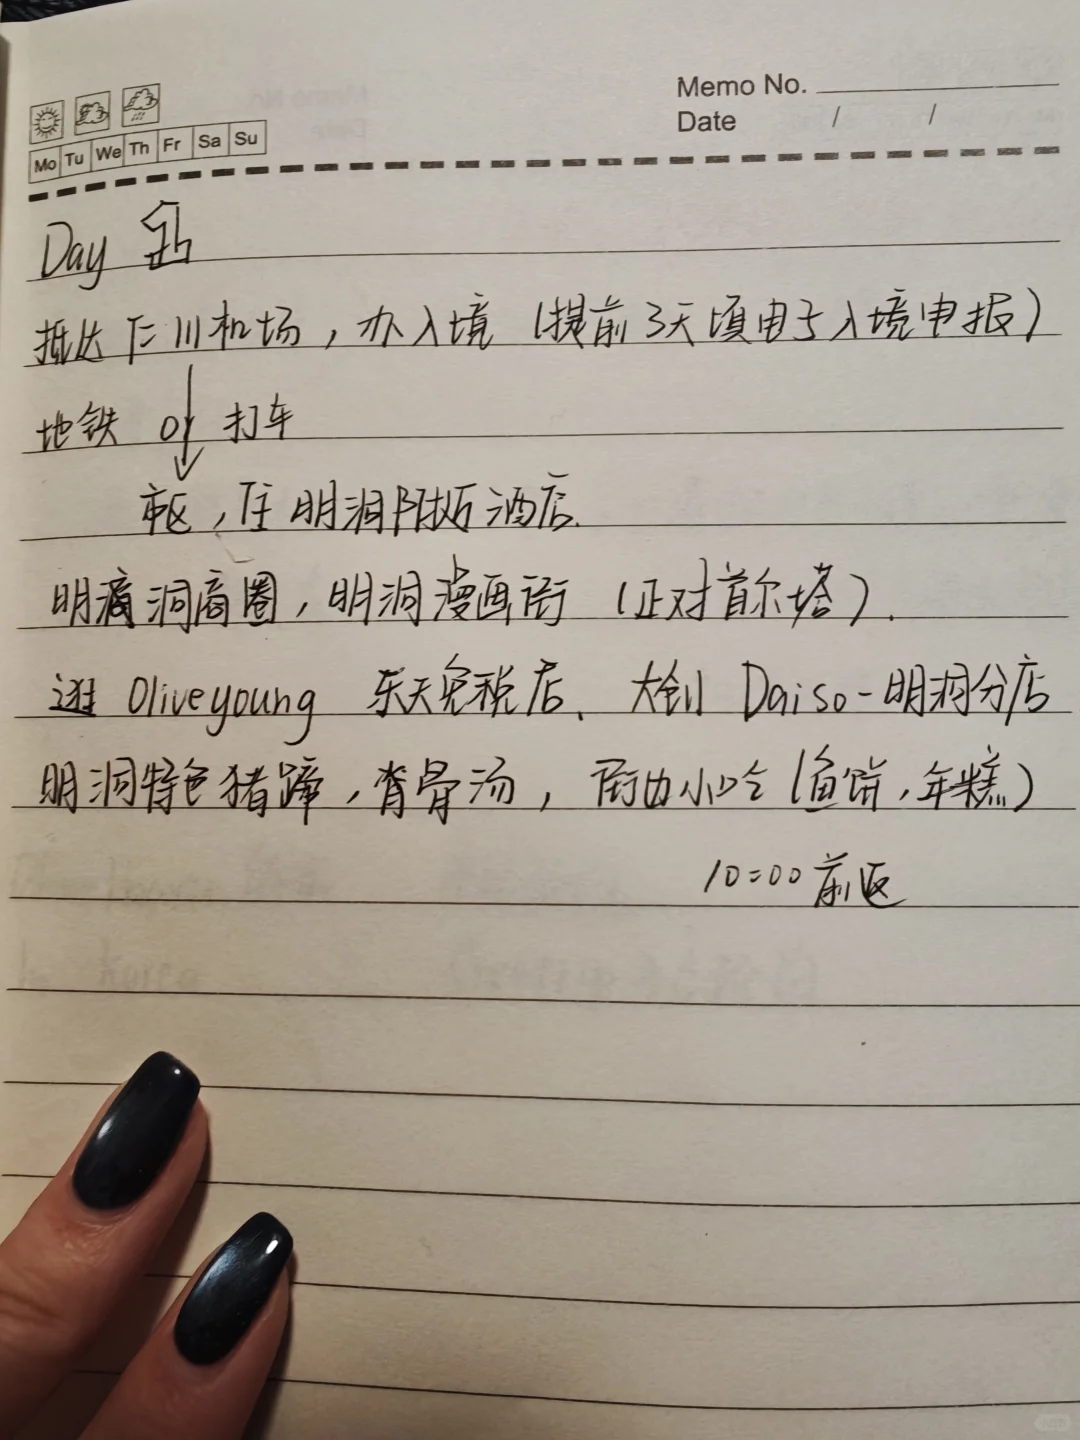 Memo No.
Date / /
Mo Tu We Th Fr Sa Su
Day 1
抵达仁川机场，办入境（提前3天填电子入境申报）
地铁 or 打车
市区，住明洞附近酒店.
明洞商圈，明洞漫画街（正对首尔塔）.
逛 Oliveyoung 乐天免税店、大创 Daiso-明洞分店
明洞特色猪蹄，脊骨汤，街边小吃（鱼饼，年糕）
10:00前返